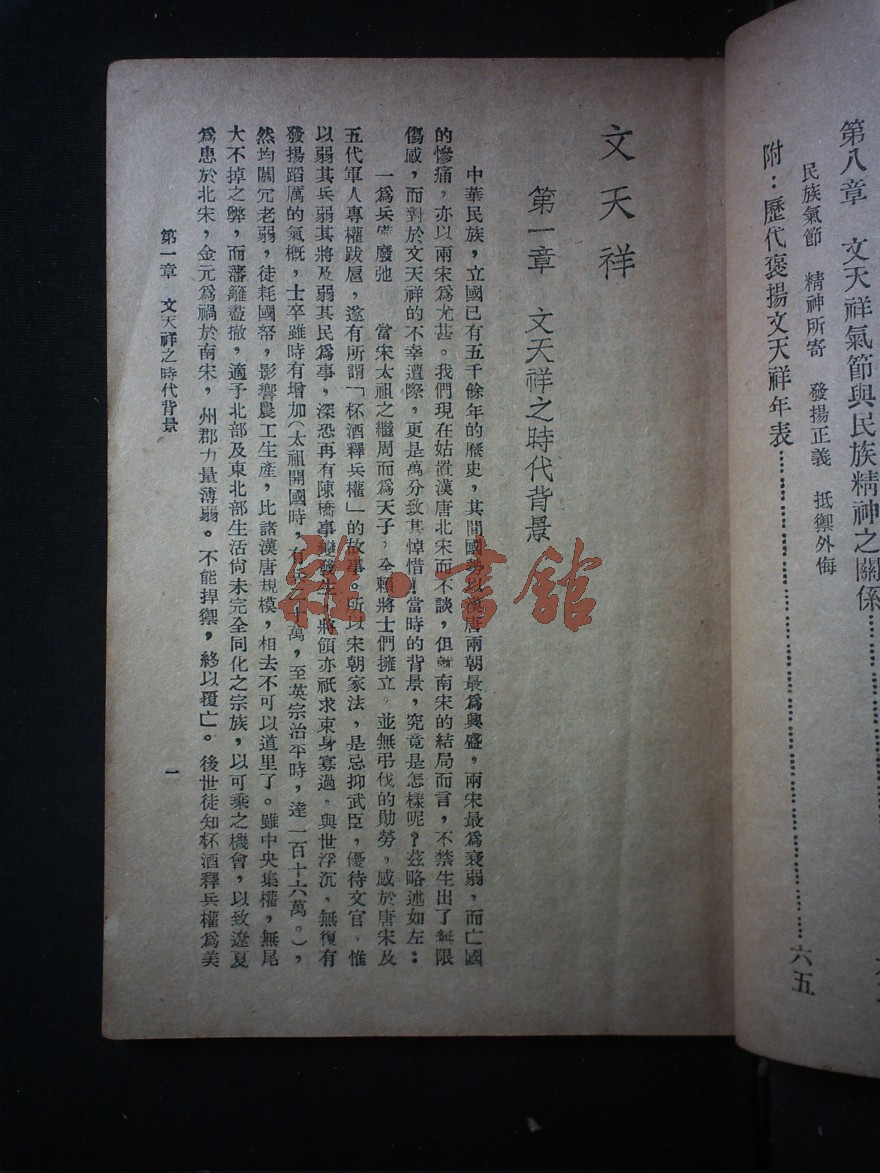 第八章　文天祥氣節與民族精神之關係
民族氣節　精神所寄　發揚正義　抵禦外侮
附：歷代褒揚文天祥年表……六五
文天祥
第一章　文天祥之時代背景
中華民族，立國已有五千餘年的歷史，其間國勢以漢唐兩朝最為興盛，兩宋最為衰弱，而亡國
的慘痛，亦以兩宋為尤甚。我們現在姑置漢唐北宋而不談，但就南宋的結局而言，不禁生出了無限
傷感，而對於文天祥的不幸遭際，更是萬分致其悼惜！當時的背景，究竟是怎樣呢？茲略述如左：
一為兵備廢弛　當宋太祖之繼周而為天子，全賴將士們擁立，並無弔伐的勛勞，感於唐宋及
五代軍人專權跋扈，遂有所謂「杯酒釋兵權」的故事。所以宋朝家法，是忌抑武臣，優待文官，惟
以弱其兵弱其將及弱其民為事，深恐再有陳橋事變發生，將領亦祇求束身寡過，與世浮沉，無復有
發揚蹈厲的氣概，士卒雖時有增加（太祖開國時，有兵二十萬，至英宗治平時，達一百十六萬。），
然均闒冗老弱，徒耗國帑，影響農工生產，比諸漢唐規模，相去不可以道里了。雖中央集權，無尾
大不掉之弊，而藩籬盡撤，適予北部及東北部生活尙未完全同化之宗族，以可乘之機會，以致遼夏
為患於北宋，金元為禍於南宋，州郡力量薄弱。不能捍禦，終以覆亡。後世徒知杯酒釋兵權為美
第一章　文天祥之時代背景
一
雜·書館